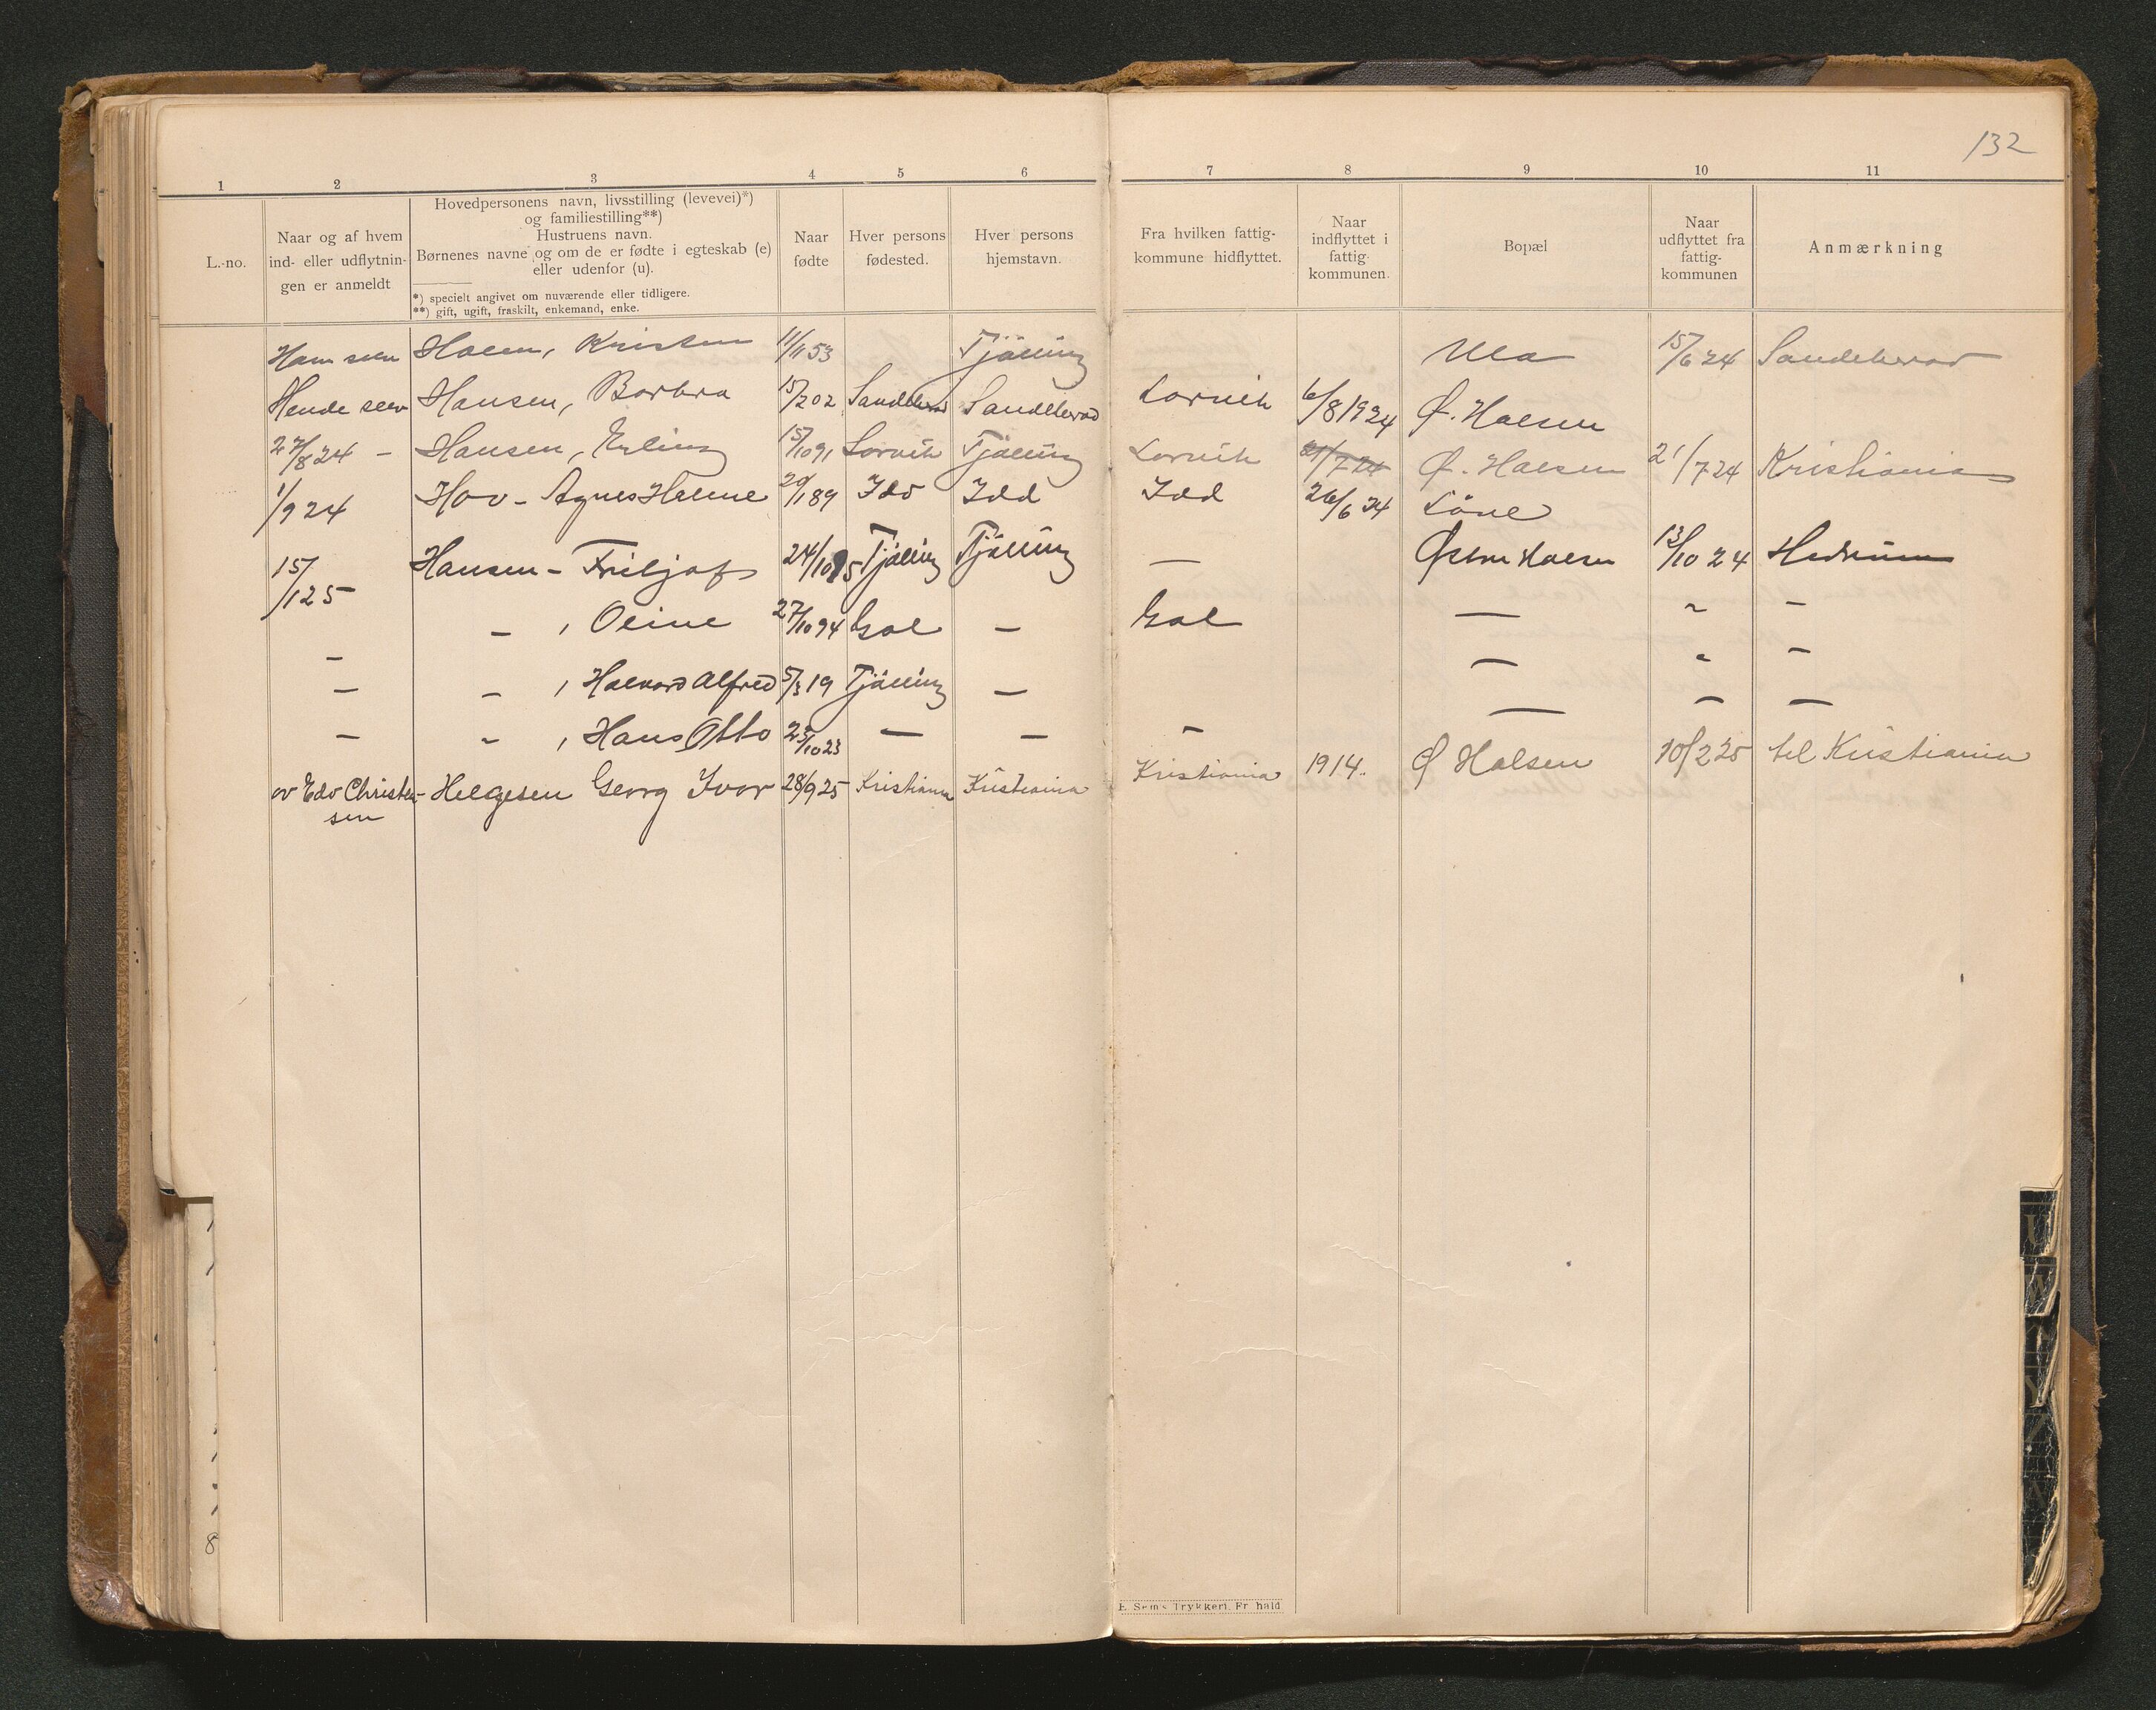 132
1 2 3 4 5 6 7 8 9 10 11
L.-no.
Naar og af hvem
ind- eller udflytnin-
gen er anmeldt
Hovedpersonens navn, livsstilling (levevei)*)
og familiestilling**)
Hustruens navn.
Børnenes navne og om de er fødte i egteskab (e)
eller udenfor (u).
*) specielt angivet om nuværende eller tidligere.
**) gift, ugift, fraskilt, enkemand, enke.
Naar
fødte
Hver persons
fødested.
Hver persons
hjemstavn.
Fra hvilken fattig-
kommune hidflyttet.
Naar
indflyttet i
fattig-
kommunen.
Bopæl
Naar
udflyttet fra
fattig-
kommunen
Anmærkning
Ham selv Halsen, Kristen 11/1 53 Tjølling Ula 15/6 24 Sandeherad
Hende selv Hansen, Borbra 15/2 02 Sandeherad Sandeherad Larvik 6/8 1924 Ø. Halsen
27/8 24 - Hansen, Erling 15/10 91 Larvik Tjølling Larvik 21/7 24 Ø. Halsen 21/7 24 Kristiania
1/9 24 Hov - Agnes Helene 20/1 89 Idd Idd Idd 26/6 24 Løve
15/1 25 Hansen - Fritjof 24/10 95 Tjølling Tjølling — Østre Halsen 13/10 24 Hedrum
— - , Oline 27/10 94 Gol — Gol — " -
— - , Halvard Alfred 5/3 19 Tjølling — — " -
— " , Hans Otto 25/10 23 — — - — - —
av Edv Christen- Helgesen Georg Ivar 28/9 25 Kristiania Kristiania Kristiania 1914. Ø Halsen 10/2 25 til Kristiania
sen
E. Sem's Trykkeri. Fr.hald
8